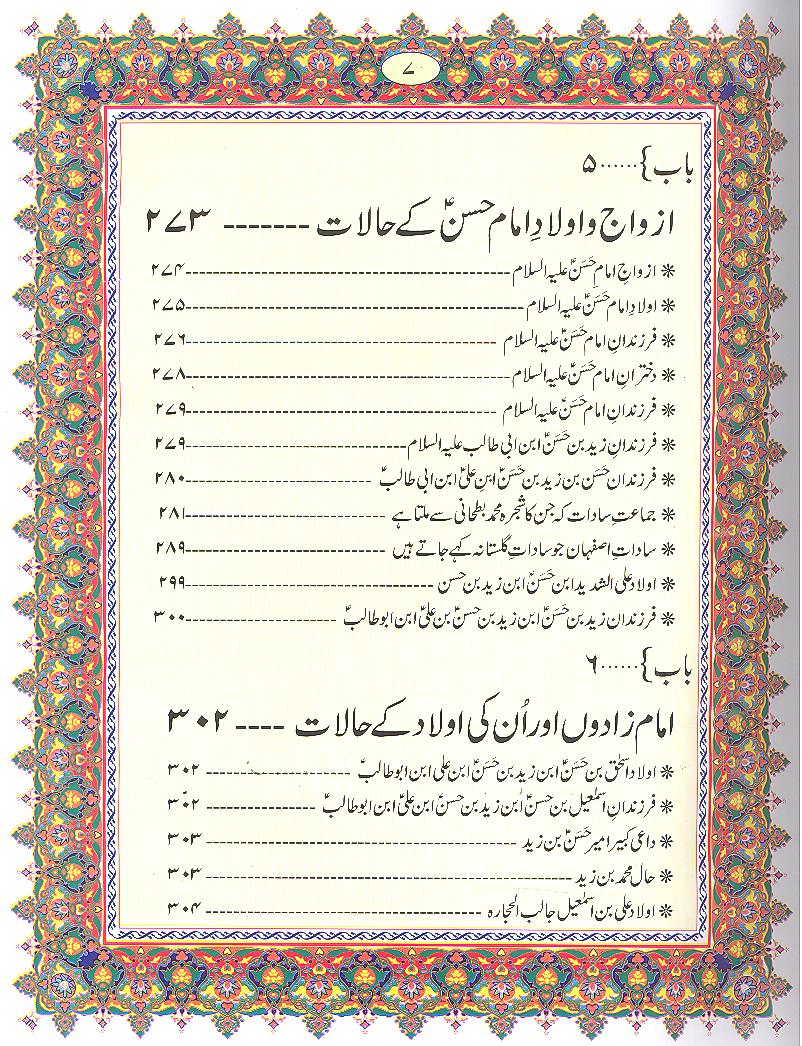 ۷
باب }......۵
ازواج و اولادِ امام حسنؑ کے حالات ------- ۲۷۳
❋ ازواجِ امام حَسَنؑ علیہ السلام ------- ۲۷۴
❋ اولادِ امام حَسَنؑ علیہ السلام ------- ۲۷۵
❋ فرزندانِ امام حَسَنؑ علیہ السلام ------- ۲۷۶
❋ دخترانِ امام حَسَنؑ علیہ السلام ------- ۲۷۸
❋ فرزندانِ امام حَسَنؑ علیہ السلام ------- ۲۷۹
❋ فرزندانِ زید بن حَسَنؑ ابن ابی طالب علیہ السلام ------- ۲۷۹
❋ فرزندان حَسَن بن زید بن حَسَنؑ ابن علیؑ ابن ابی طالبؑ ------- ۲۸۰
❋ جماعتِ سادات کہ جن کا شجرہ محمد بطحانی سے ملتا ہے ------- ۲۸۱
❋ ساداتِ اصفہان جو ساداتِ گلستانہ کہے جاتے ہیں ------- ۲۸۹
❋ اولاد علی الشدید ابن حَسَنؑ ابن زید بن حسن ------- ۲۹۹
❋ فرزندان زید بن حَسَنؑ ابن زید بن حسنؑ بن علیؑ ابن ابو طالبؑ ------- ۳۰۰
باب }......۶
امام زادوں اور اُن کی اولاد کے حالات ---- ۳۰۲
❋ اولاد اسحٰق بن حَسَنؑ ابن زید بن حَسَنؑ ابن علی ابن ابو طالبؑ ------- ۳۰۲
❋ فرزندانِ اسمٰعیل بن حسنؑ ابن زید بن حسنؑ ابن علیؑ ابن ابو طالبؑ ------- ۳۰۲
❋ داعی کبیر امیر حَسَنؑ بن زید ------- ۳۰۳
❋ حال محمد بن زید ------- ۳۰۳
❋ اولاد علی بن اسمٰعیل جالب الحجارہ ------- ۳۰۴